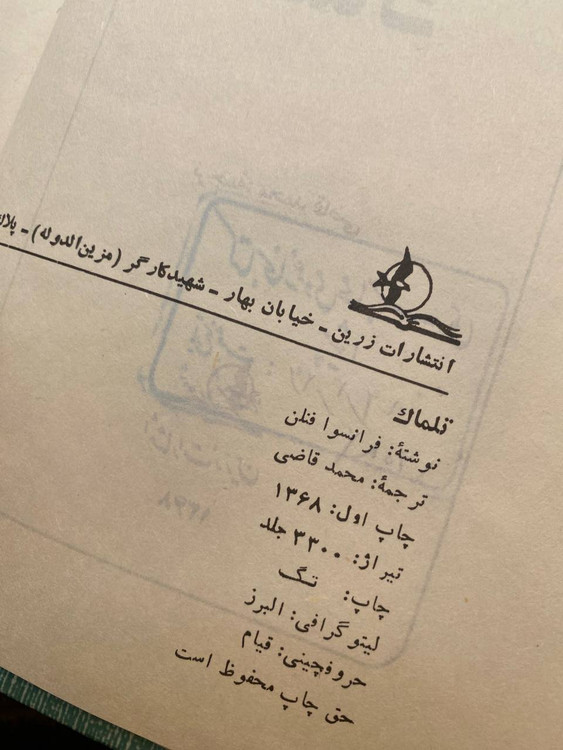 انتشارات زرین - خیابان بهار - شهید کارگر (مزین‌الدوله) - پلاك
تلماك
نوشتهٔ: فرانسوا فنلن
ترجمهٔ: محمد قاضی
چاپ اول: ۱۳۶۸
تیراژ: ۳۳۰۰ جلد
چاپ: تگ
لیتوگرافی: البرز
حروفچینی: قیام
حق چاپ محفوظ است